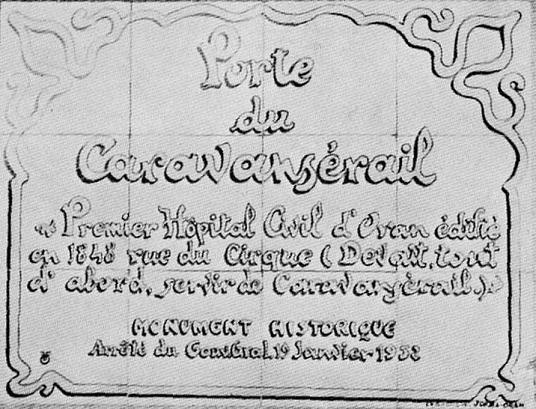 Porte
du
Caravansérail
« Premier Hôpital Civil d'Oran édifié
en 1848 rue du Cirque ( Devait, tout
d' abord, servir de Caravansérail. ) »
MONUMENT HISTORIQUE
Arrêté du Gouv. Gral. 19 Janvier 1952